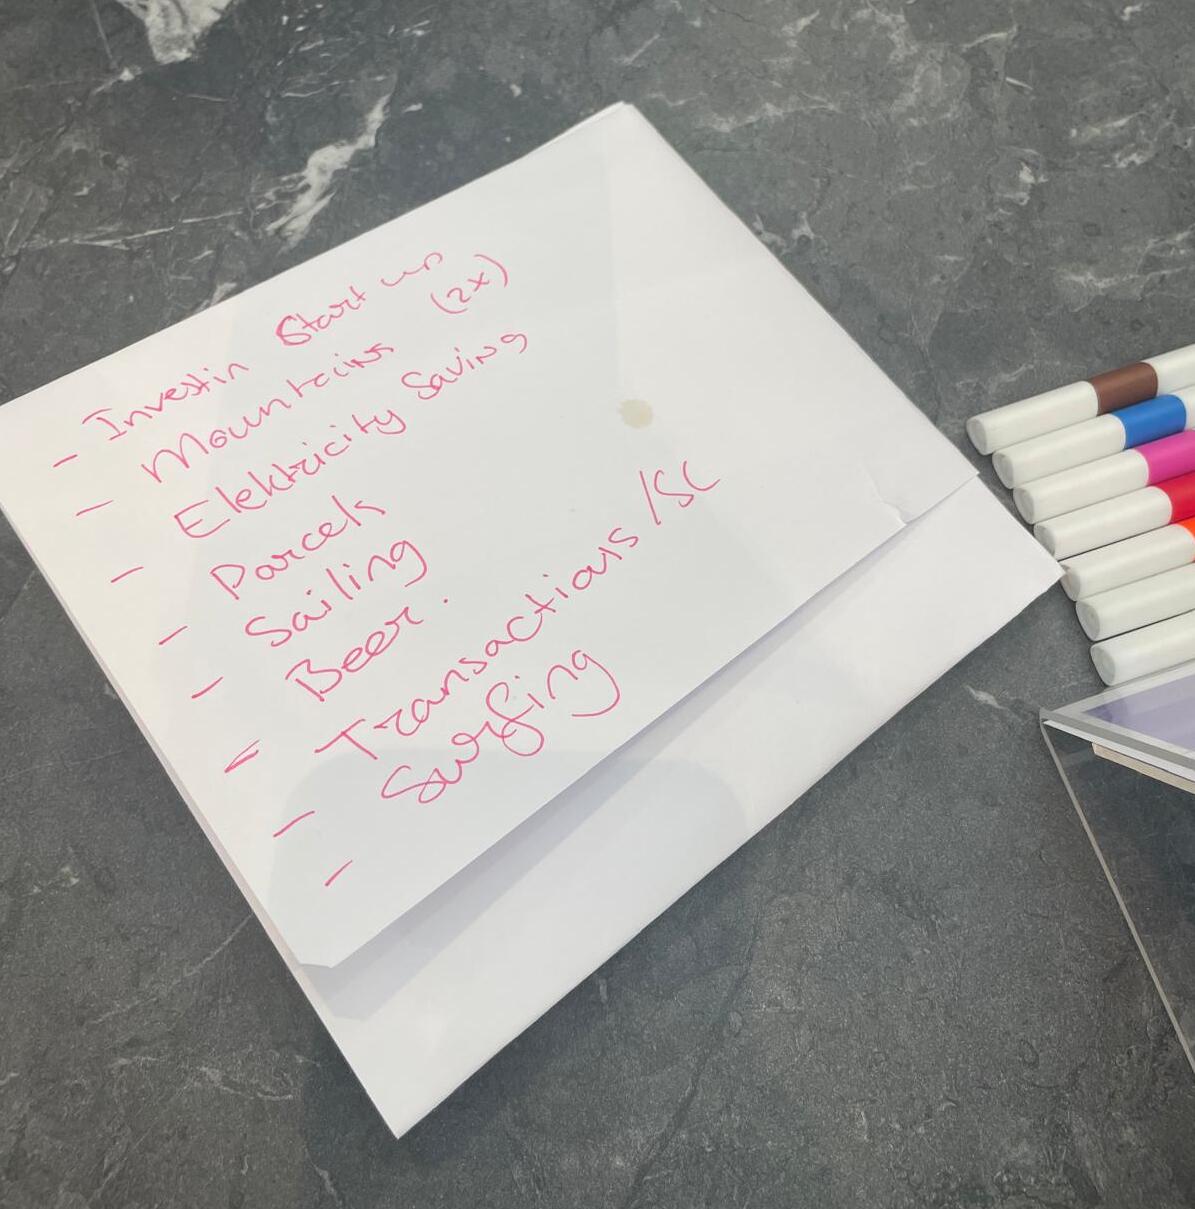 - Investin Start up
- Mountains (2x)
- Elektricity Saving
- Parcels
- Sailing
- Beer.
- Transactions/SC
- Surfing